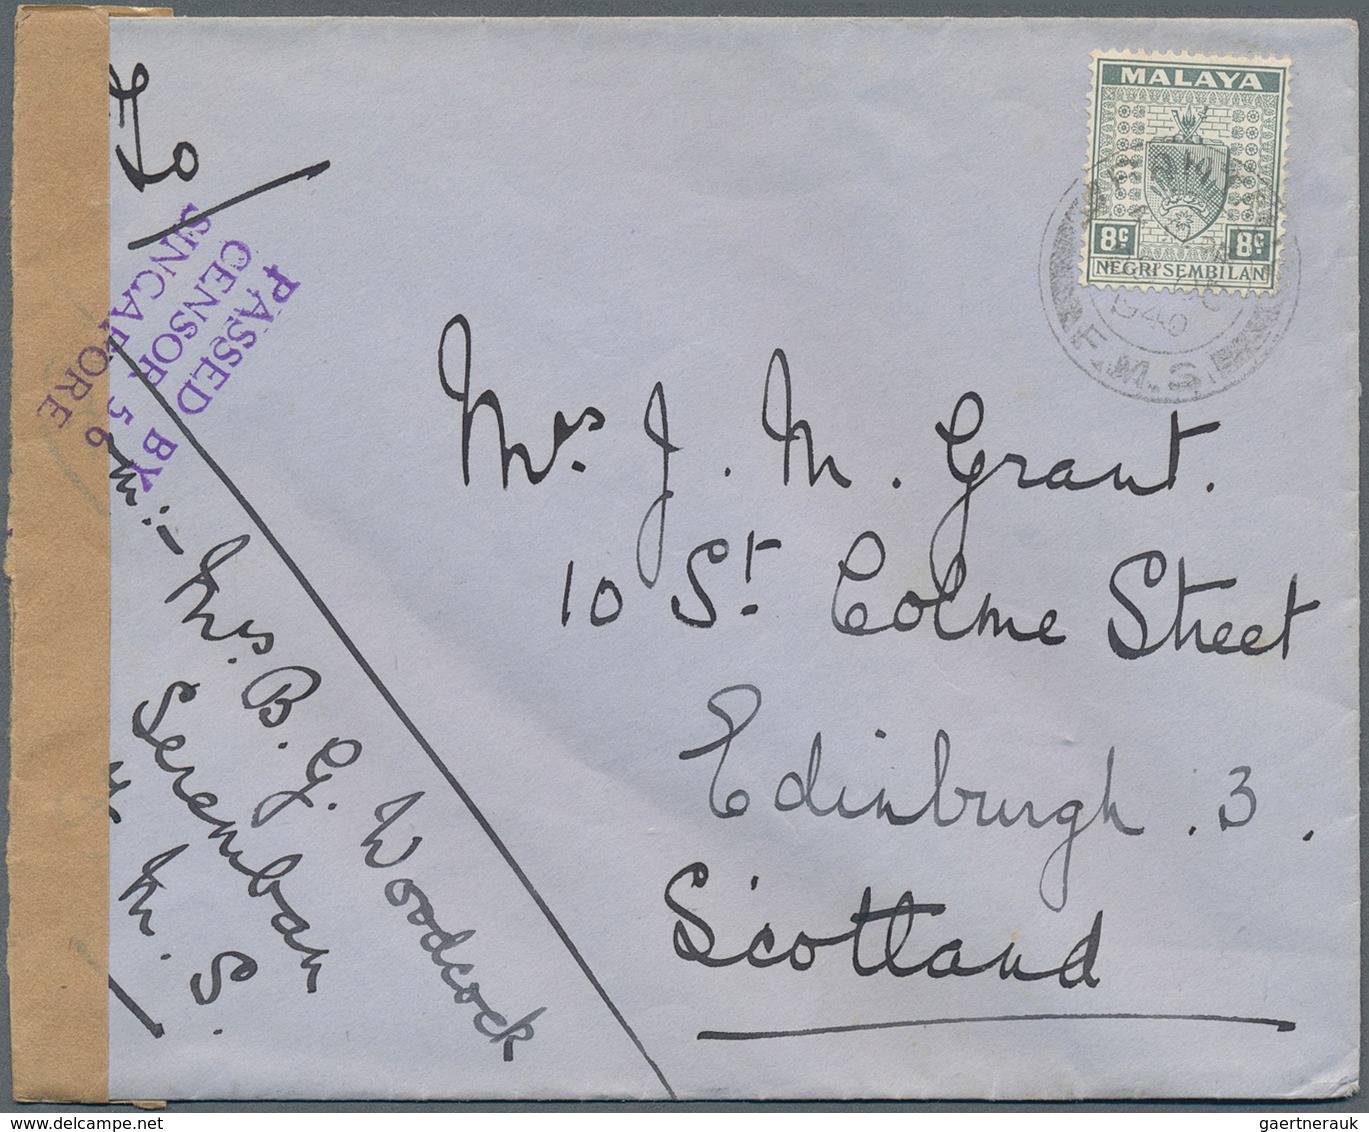 To
MALAYA
8c 8c
NEGRI SEMBILAN
1940
F.M.S.
PASSED BY
CENSOR 56
SINGAPORE
Mrs. J. M. Grant.
10 St. Colme Street
Edinburgh . 3 .
Scotland
m:- Mrs. B. G. Woodcock
Seremban
M. S.
www.delcampe.net
gaertnerauk